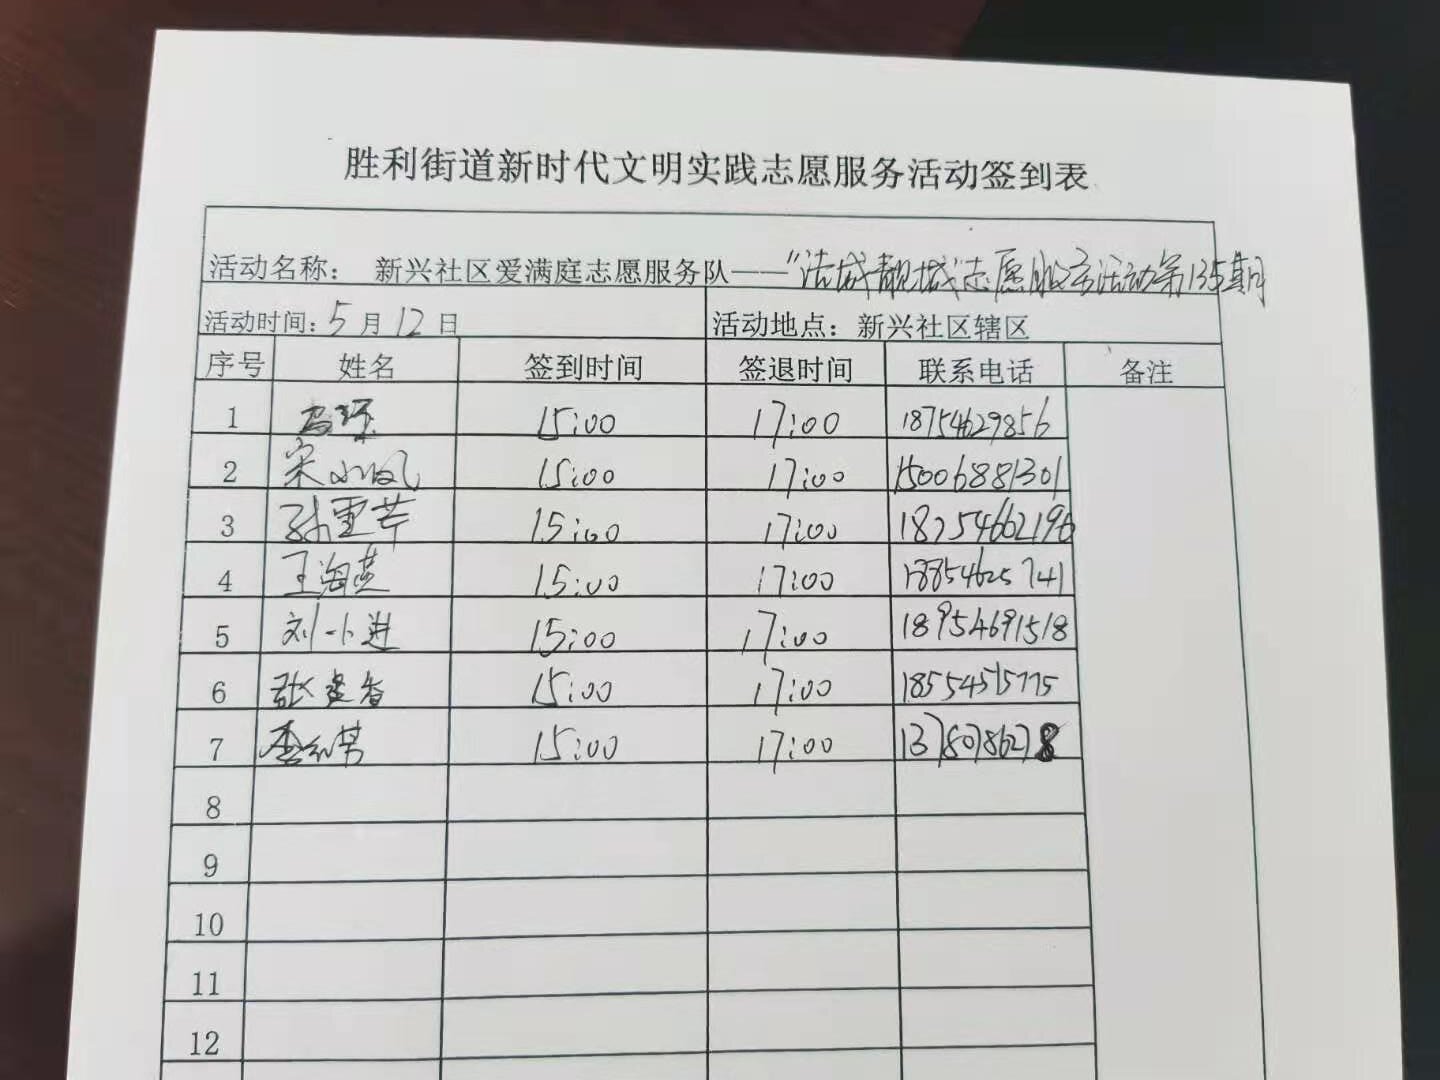 胜利街道新时代文明实践志愿服务活动签到表
活动名称： 新兴社区爱满庭志愿服务队——“洁城靓城志愿服务活动第135期
活动时间：5月12日 活动地点：新兴社区辖区
序号 姓名 签到时间 签退时间 联系电话 备注
1 15:00 17:00 18754629856
2 宋小凤 15:00 17:00 15006881301
3 孙重芹 15:00 17:00 18754662196
4 王海燕 15:00 17:00 18854625741
5 刘小进 15:00 17:00 18954691518
6 15:00 17:00 18554515775
7 15:00 17:00
8
9
10
11
12